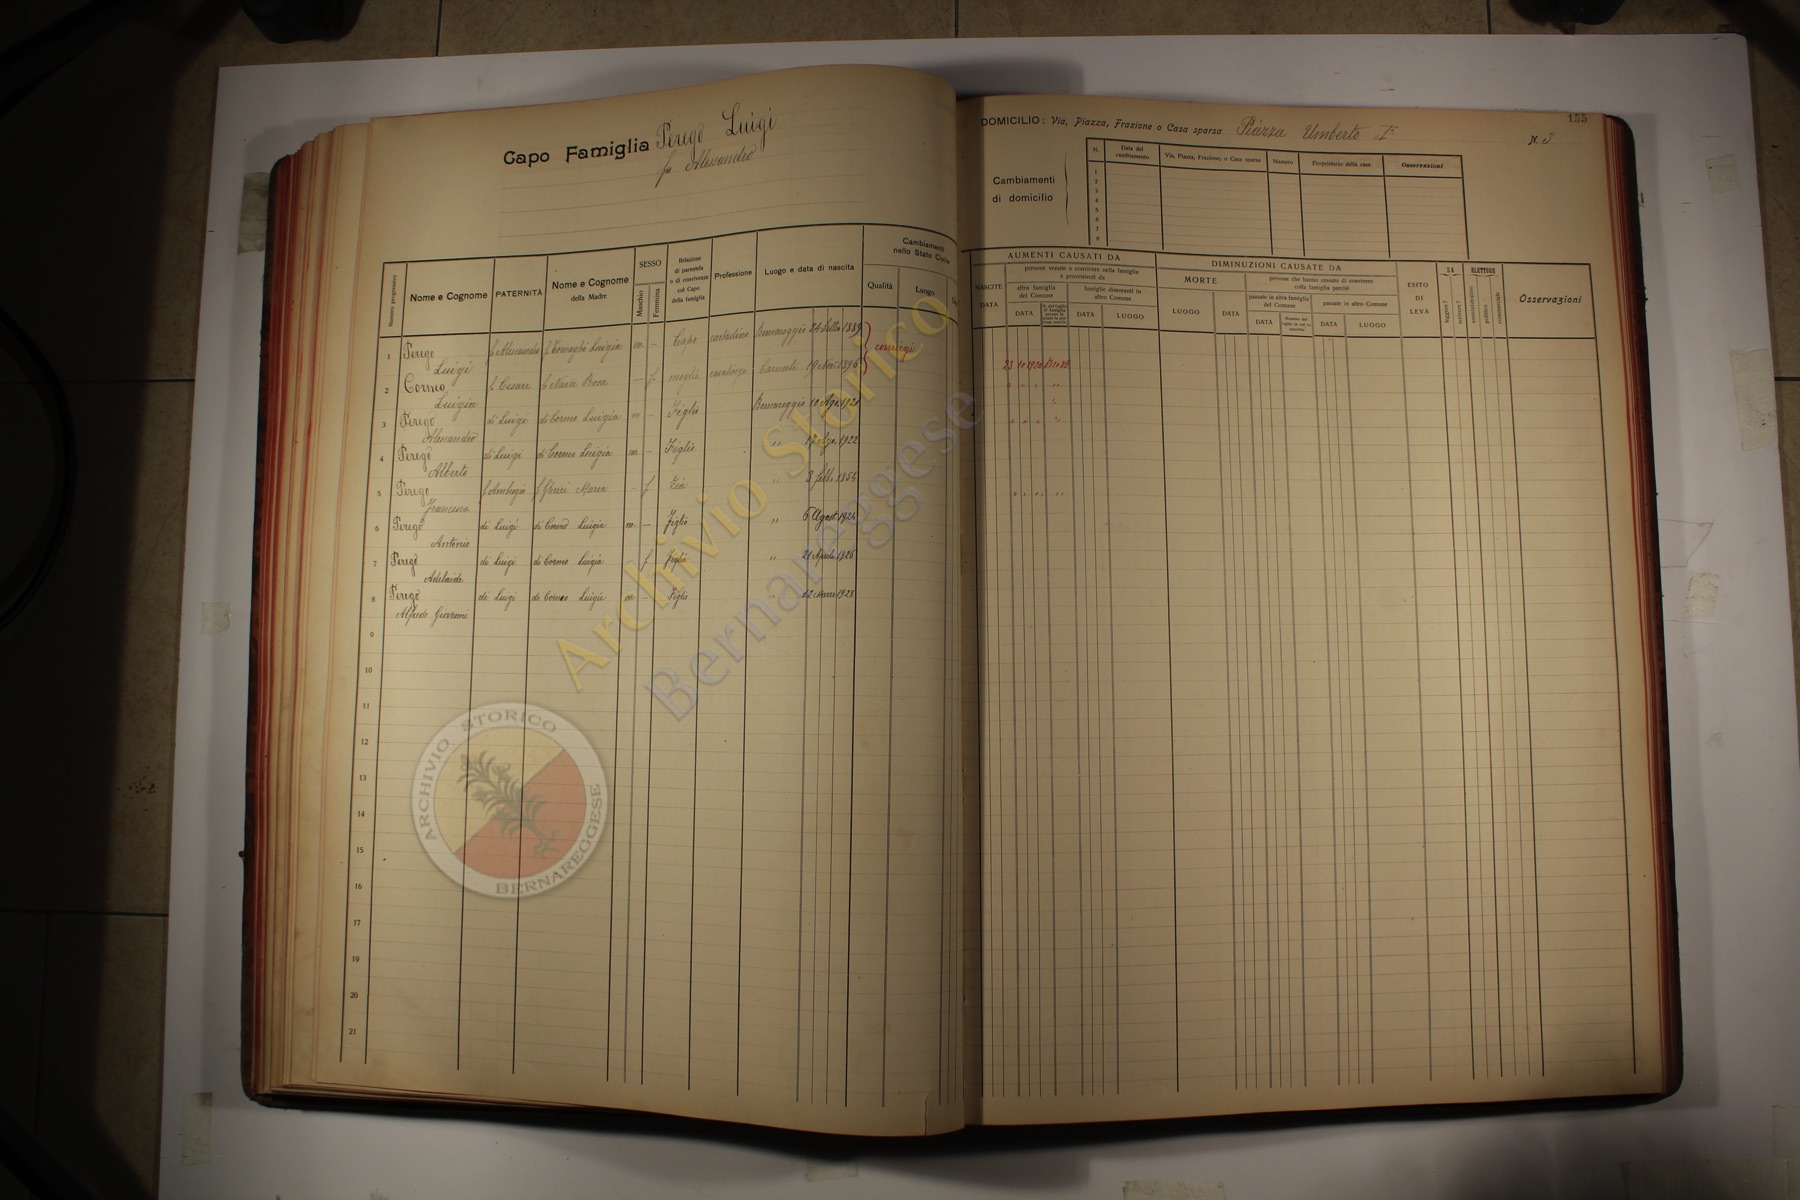 Capo Famiglia Perego Luigi
fu Alessandro
Numero progressivo
Nome e Cognome
PATERNITÀ
Nome e Cognome
della Madre
SESSO
Maschio
Femmina
Relazione
di parentela
o di convivenza
col Capo
della famiglia
Professione
Luogo e data di nascita
Cambiamenti
nello Stato Civile
Qualità
Luogo
1 Perego fu Alessandro Luigia m. – Capo contadino Bernareggio 24 1889
Luigi
coniugi
2 Corneo fu Cesare fu Nava Rosa – f moglie casalinga Carnate 19 Nov. 1896
Luigia
3 Perego di Luigi di Corneo Luigia m – Figlio Bernareggio 10 Ago. 1921
Alessandro
4 Perego di Luigi di Corneo Luigia m. – Figlio " 17 Ago. 1922
Alberto
5 Perego fu Ambrogio Maria – f Zia " 3 1854
Francesca
6 Perego di Luigi di Corneo Luigia m. – Figlio " 6 Agost. 1924
Antonio
7 Perego di Luigi di Corneo Luigia f Figlia " 21 Aprile 1926
Adelaide
8 Perego di Luigi di Corneo Luigia m – Figlio " 12 Marzo 1928
Alfredo Giovanni
9
10
11
12
13
14
15
16
17
18
19
20
21
155
DOMICILIO: Via, Piazza, Frazione o Casa sparsa Piazza Umberto I°
N. 3
Cambiamenti
di domicilio
N.
Data del
cambiamento
Via, Piazza, Frazione, o Casa sparsa
Numero
Proprietario della casa
Osservazioni
1
2
3
4
5
6
7
8
AUMENTI CAUSATI DA
NASCITE
DATA
persone venute a convivere nella famiglia
e provenienti da
altra famiglia
del Comune
DATA
famiglie dimoranti in
altro Comune
DATA
LUOGO
DIMINUZIONI CAUSATE DA
MORTE
LUOGO
DATA
persone che hanno cessato di convivere
colla famiglia perchè
passate in altra famiglia
del Comune
DATA
passate in altro Comune
DATA
LUOGO
ESITO
DI
LEVA
SA
leggere?
scrivere?
ELETTORE
amministrativo
politico
commerciale
Osservazioni
23 10 1920
Archivio Storico
Bernareggese
ARCHIVIO STORICO
BERNAREGGESE